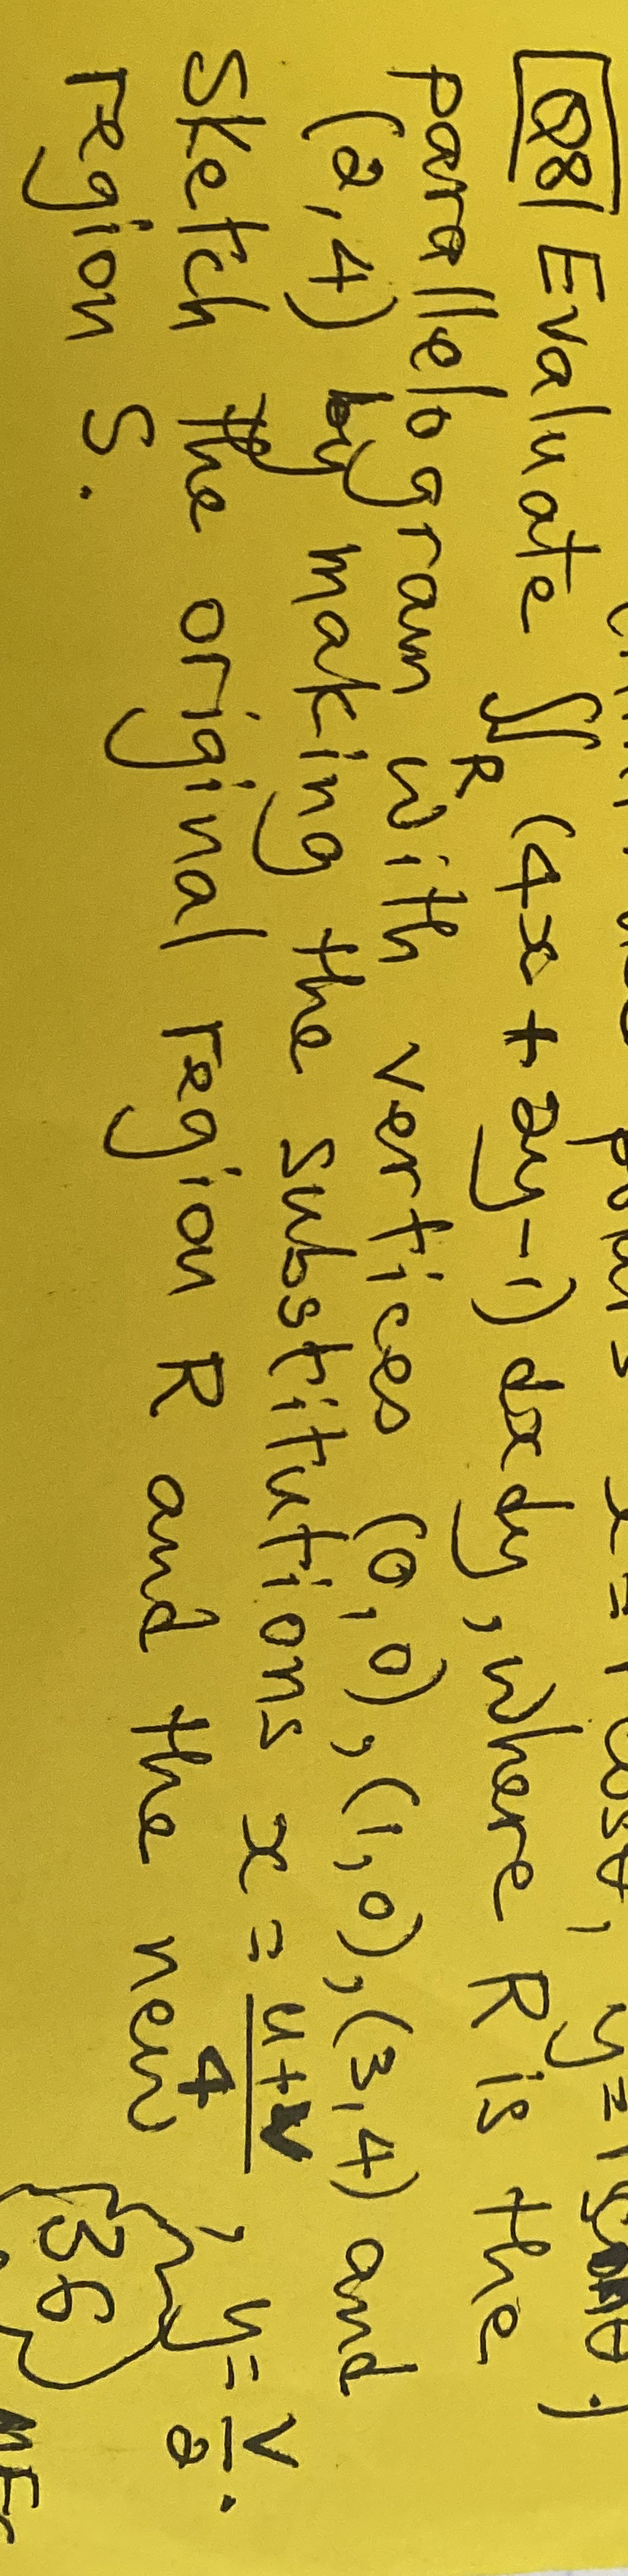 Q8 Evaluate ∬_R (4x + 2y - 1) dx dy, where R is the
parallelogram with vertices (0,0), (1,0), (3,4) and
(2,4) by making the substitutions x = \frac{u+v}{4}, y = \frac{v}{2}.
Sketch the original region R and the new
region S.
36